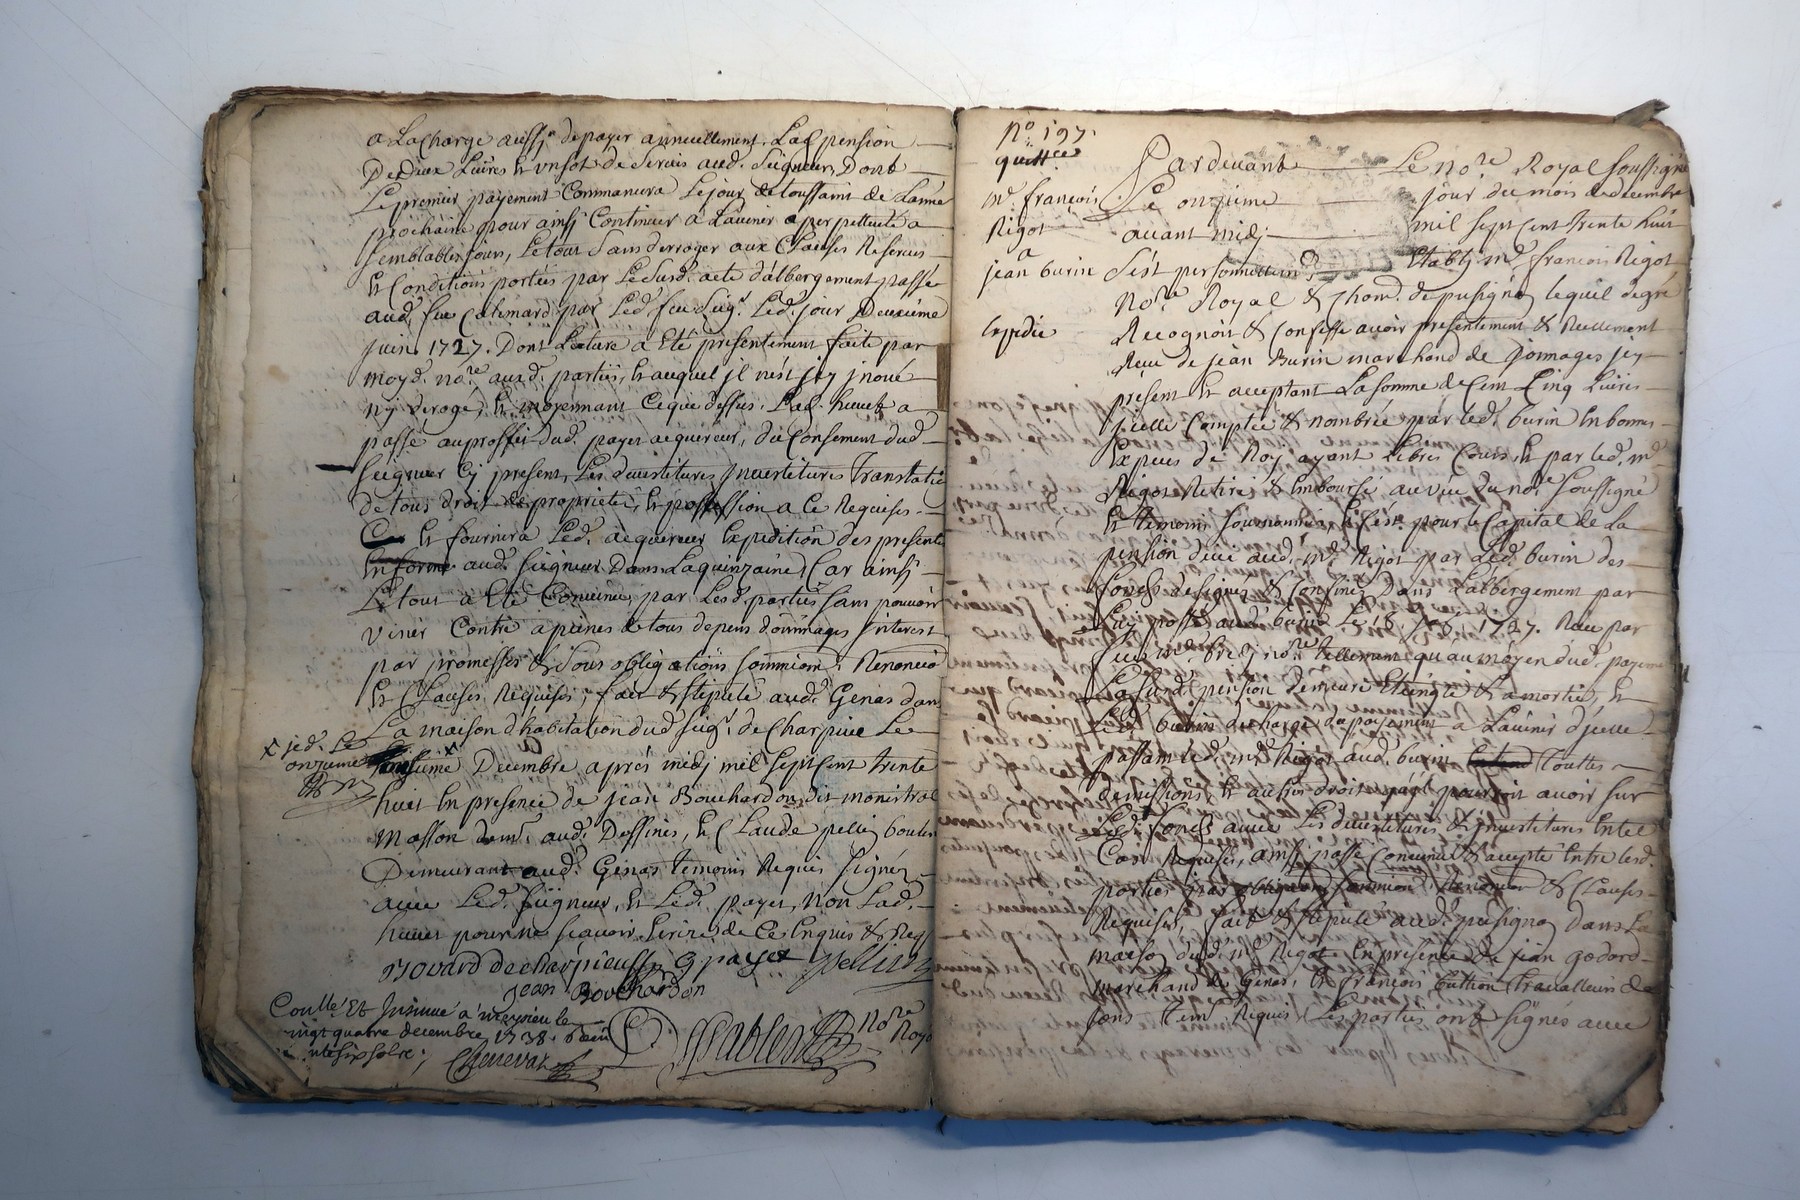 a La charge aussy de payer annuellement Lad pension
De deux Livres et un sol de servis aud. Seigneur, Dont
Le premier payement Commancera Le jour de toussaint de Lannée
prochaine pour ainsy Continuer a Lavenir a perpettuité a
semblables jours, Le tout sans derroger aux Clauses Reserves
et Conditions portées par Le susd. acte d'albergement passé
aud. feu Calemard par Led. feu Seigr. Led. jour Deuxieme
juin 1727. Dont Lecture a Eté presentement faite par
moyd. nore. auxd. parties, et auquel jl n'est jcy jnoué
ny derogé, et moyennant Ceque dessus, Lad. huvet a
passé au proffit dud. payet acquereur, du Consement dud.
Seigneur Cy present, Les devestitures jnvestitures Translatio
de tous droit de proprieté, et possession a Ce Requises
et fournira Led. acquereur Expedition des presente
En forme aud. Seigneur Dans La quinzaine, Car ainsy
Le tout a Eté Convenu par Lesd. parties sans pouvoir
venir Contre a peines de tous depens dommages jnterest
par promesses & sous obligations soumission Renonciõ
et Clauses Requises, fait & stipulé aud. Genas dans
La maison d'habitation dud. seigr. de Charpieu Le
x jed. Le
onzieme
Decembre après midy mil sept Cent trente
huit En presence de jean Bouchardon dit monistrol
masson demt. aud. Dessines, et Claude pellin
Demeurant aud. Genas temoins Requis signés
avec Led. Seigneur, et Led. payet, non Lad.
huvet pour ne sçavoir Ecrire de Ce Enquis & Reqs
Bovard de charpieu g payet pellin
jean Bouchardon
Conllé Et Insinué à meyzieu le
vingt quatre decembre 1738. Recu
Chenevaz
Sablen Nore Royal
No 197.
quittce
mr. françois
Rigot
a
jean burin
Expedié
Pardevant Le nore. Royal soussigné
Le onzieme jour du mois de decembre
avant midy mil sept Cent trente huit
s'est personnellemt Etably mr. françois Rigot
Nore. Royal & de pusignan lequel de gré
Recognoit & Confesse avoir presentement & Reellement
Reçu de jean Burin marchand de jonnages jcy
present et acceptant La somme de Cent Cinq Livres
jcelle Comptée & nombrée par led. burin En bonnes
Especes de Roy ayant Libres Cours, et par led. mr.
Rigot Retiré & Emboursé, au vüe du nore. soussigné
et temoins sournommés, et C'est pour le Capital de La
pension düe aud. mr. Rigot par Led. burin des
fonds designés & Confinés Dans L'albergement par
Luy passé aud. burin Le 1727. Reçu par
nore. tellement qu'au moyen dud. payemt
La susd. pension demeure Eteingte & amortie, et
Led. burin dechargé du payement a L'avenir d'jcelle
passant led. mr. Rigot aud. burin touttes
demissions, et autres droits qu'jl pourroit avoir sur
Lesd. fonds avec Les devestitures & jnvestitures En tel
Cas Requises, ainsy passé Convenu & accepté Entre lesd.
parties par obligaõns soumissions Renonciaõn & Clauses
Requises, fait & stipulé aud. pusignan dans La
maison dud. mr. Rigot En presence de jean godard
marchand de Genas, et françois buttion travailleur de
jons temt. Requis Les parties ont signés avec